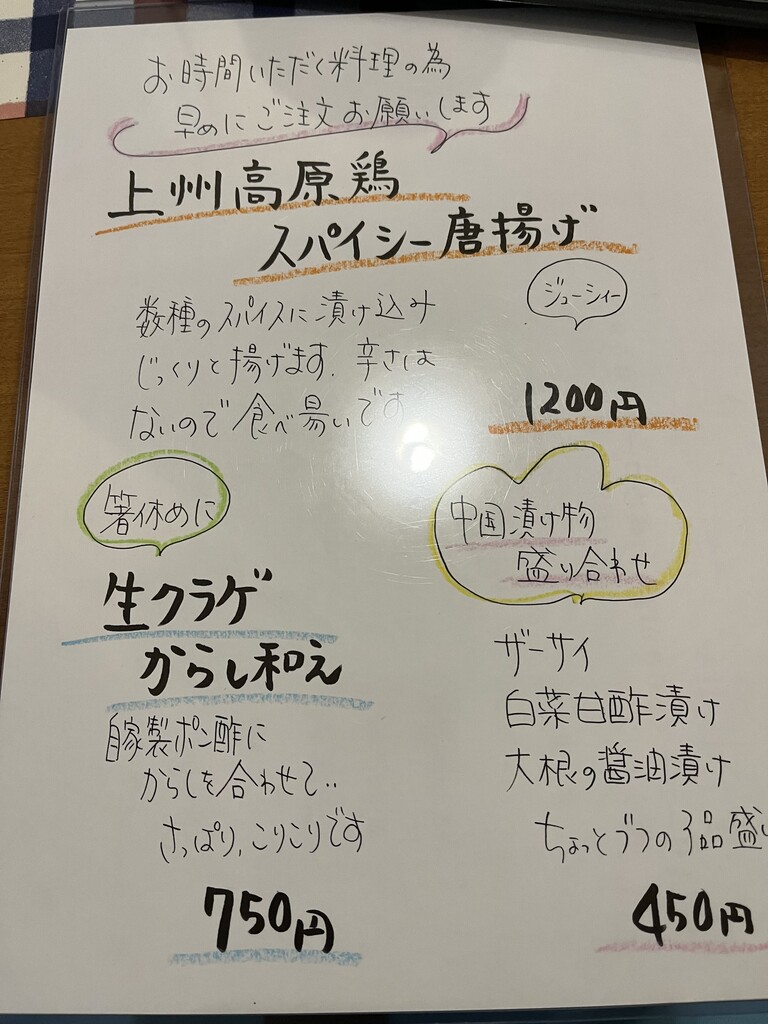 お時間いただく料理の為
早めにご注文お願いします
上州高原鶏
スパイシー唐揚げ
ジューシィー
数種のスパイスに漬け込み
じっくりと揚げます. 辛さは
ないので食べ易いです
1200円
箸休めに
生クラゲ
からし和え
自家製ポン酢に
からしを合わせて..
さっぱり,こりこりです
750円
中国漬け物
盛り合わせ
ザーサイ
白菜甘酢漬け
大根の醤油漬け
ちょっとづつの3品盛り
450円